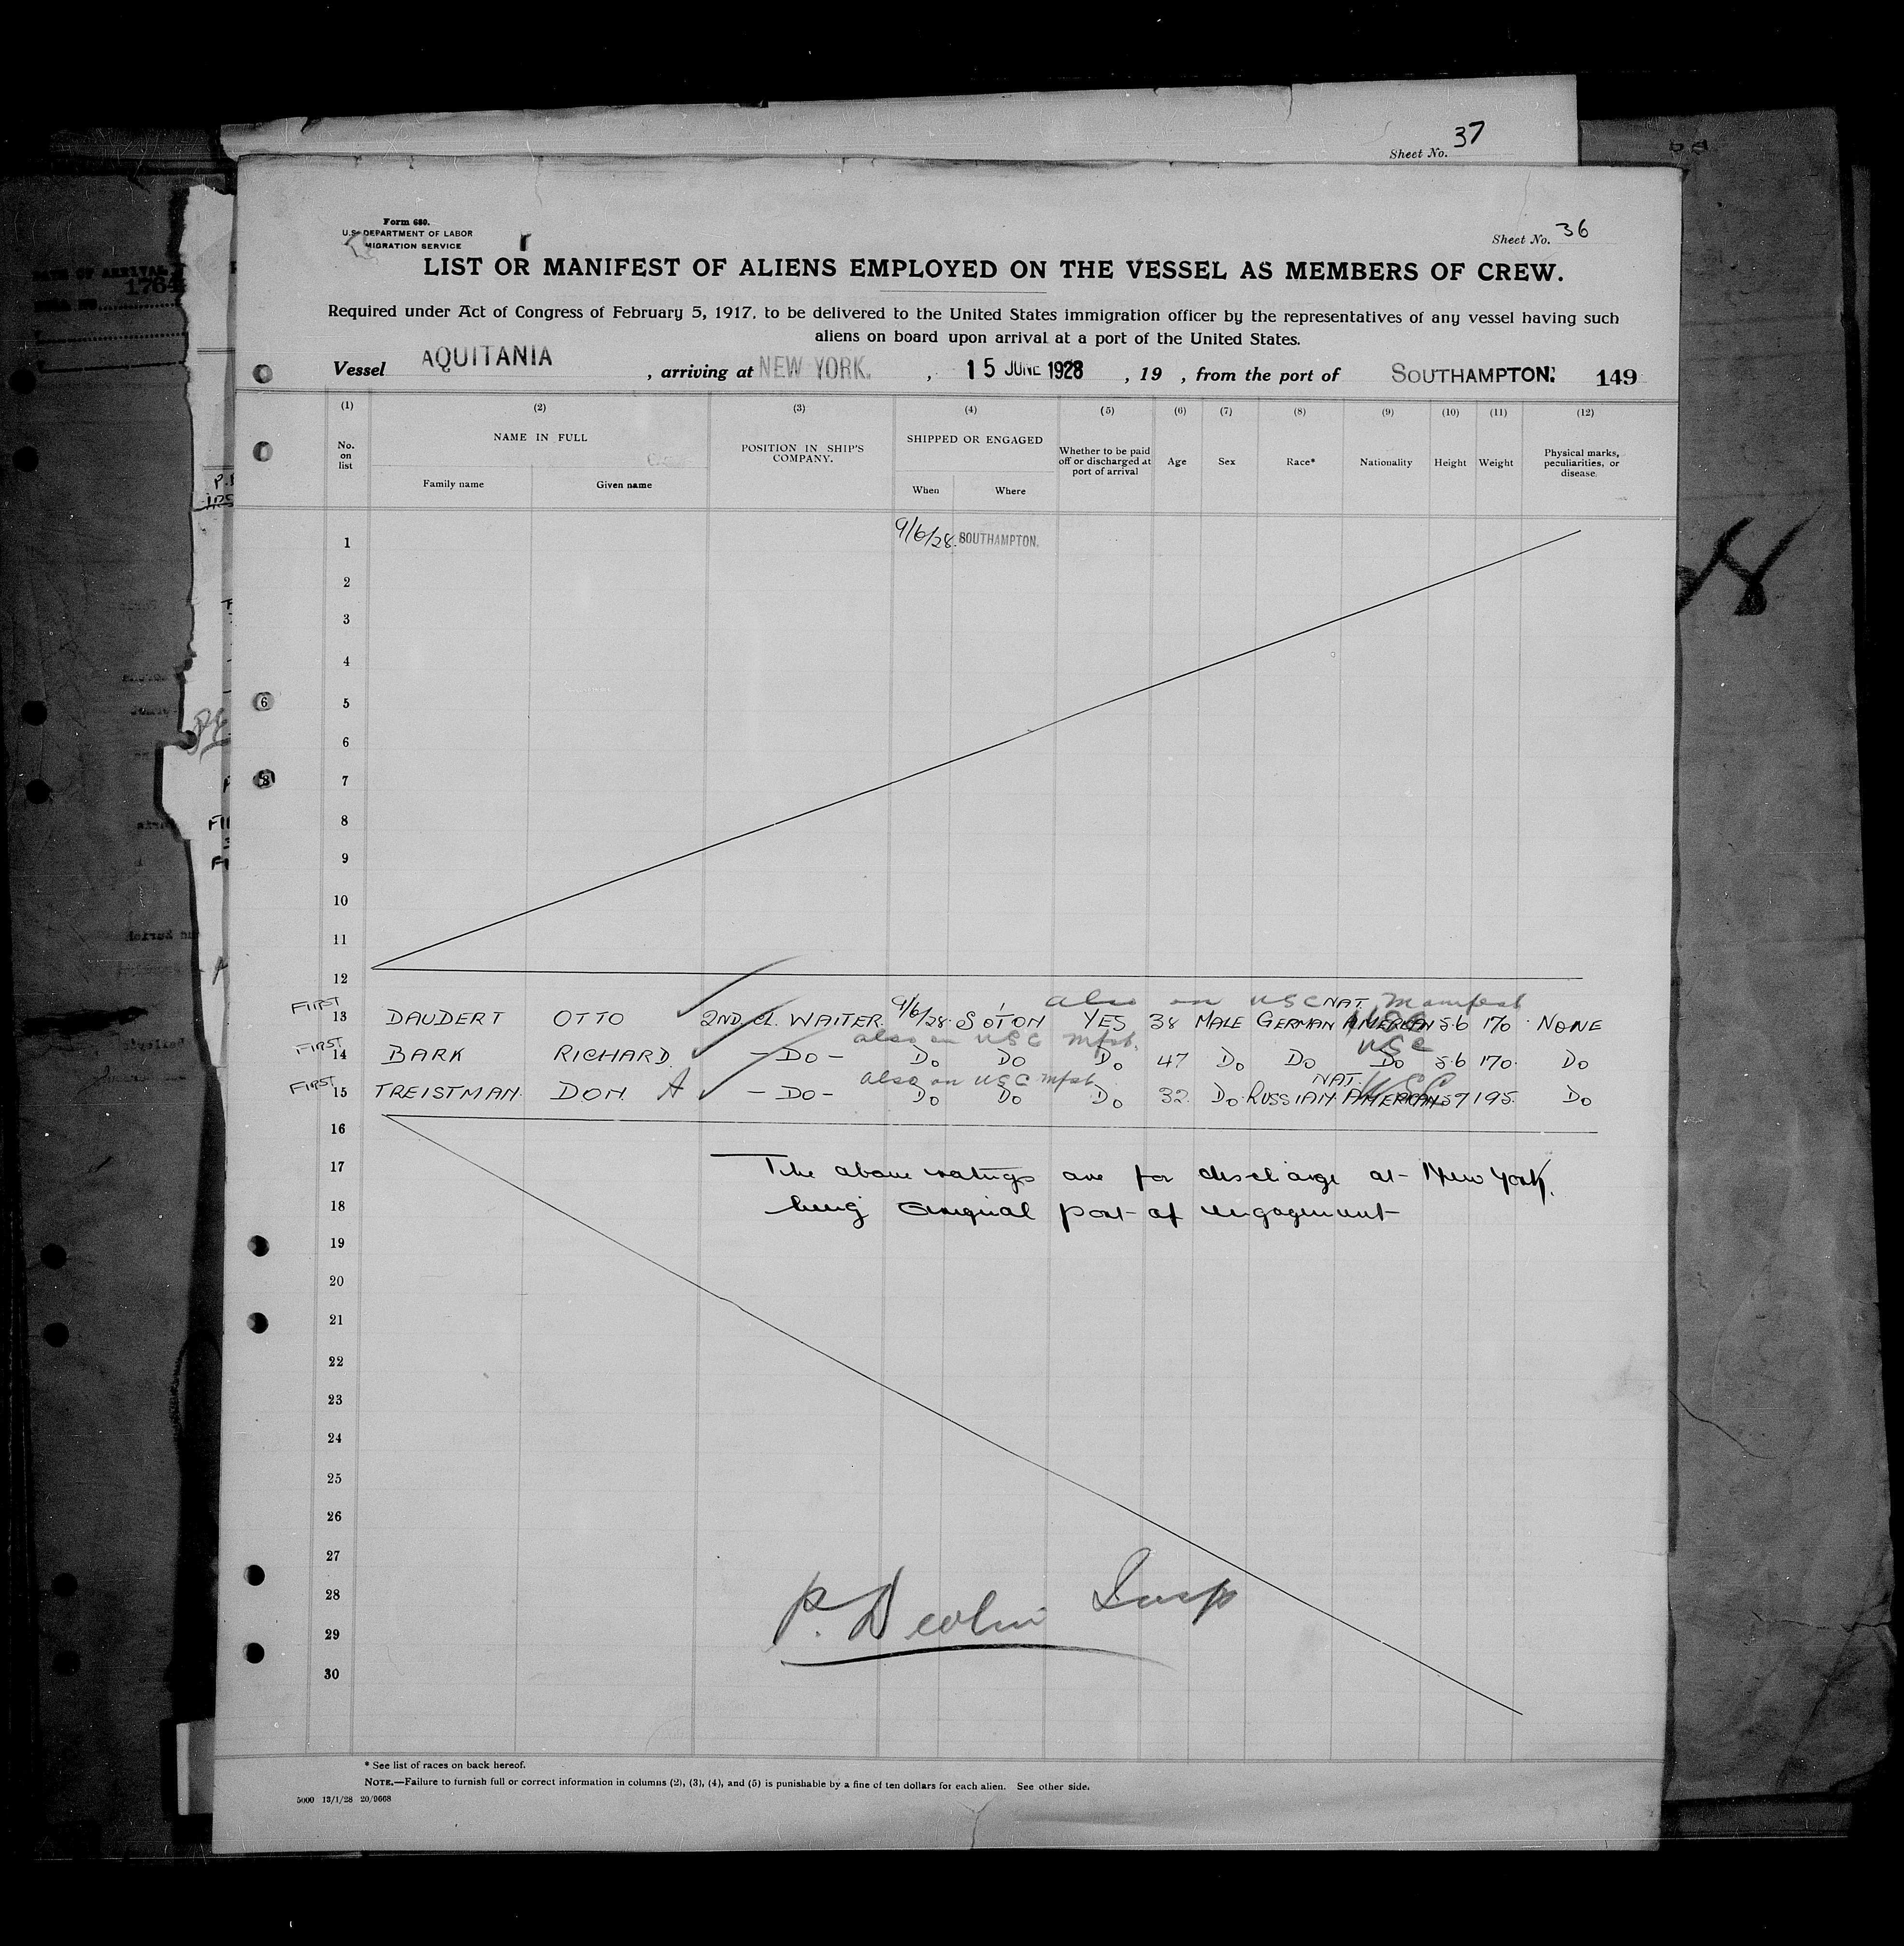 Sheet No. 37
Form 680.
U.S. DEPARTMENT OF LABOR
MIGRATION SERVICE
Sheet No. 36
LIST OR MANIFEST OF ALIENS EMPLOYED ON THE VESSEL AS MEMBERS OF CREW.
Required under Act of Congress of February 5, 1917, to be delivered to the United States immigration officer by the representatives of any vessel having such
aliens on board upon arrival at a port of the United States.
Vessel AQUITANIA , arriving at NEW YORK. , 15 JUNE 1928 , 19 , from the port of SOUTHAMPTON. 149
(1) (2) (3) (4) (5) (6) (7) (8) (9) (10) (11) (12)
No. on list NAME IN FULL POSITION IN SHIP'S COMPANY. SHIPPED OR ENGAGED Whether to be paid off or discharged at port of arrival Age Sex Race* Nationality Height Weight Physical marks, peculiarities, or disease.
Family name Given name When Where
1 9/6/28. SOUTHAMPTON.
2
3
4
5
6
7
8
9
10
11
12
also on USC NAT. Manifest
FIRST 13 DAUDERT OTTO 2ND CL. WAITER. 9/6/28. S'OTON YES 38 MALE GERMAN AMERICAN USC 5.6 170 NONE
also on USC Mfst. USC
FIRST 14 BARK RICHARD. - DO - DO DO DO 47 DO DO DO 5.6 170. DO
also on USC Mfst NAT. USC
FIRST 15 TREISTMAN. DON. A - DO - DO DO DO 32. DO. RUSSIAN. AMERICAN 5 7 195. DO
16
17 The above ratings are for discharge at New York,
18 being original port of engagement
19
20
21
22
23
24
25
26
27
28
29 P. Devlin Insp
30
* See list of races on back hereof.
NOTE.—Failure to furnish full or correct information in columns (2), (3), (4), and (5) is punishable by a fine of ten dollars for each alien. See other side.
5000 13/1/28 20/9668